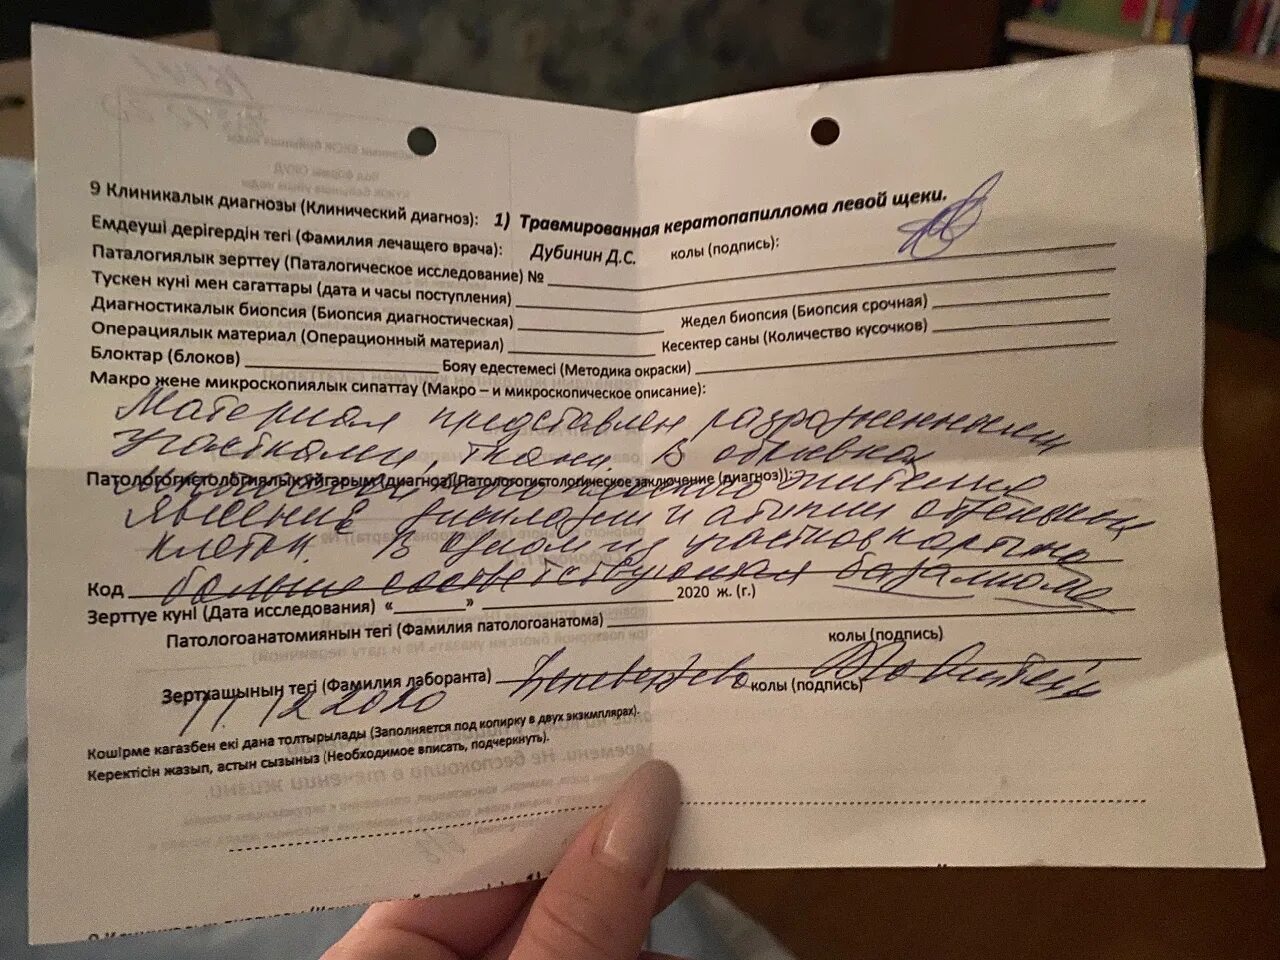 9 Клиникалык диагнозы (Клинический диагноз): 1) Травмированная кератопапиллома левой щеки.
Емдеуші дерігердін тегі (Фамилия лечащего врача): Дубинин Д.С. колы (подпись):
Паталогиялык зерттеу (Паталогическое исследование) №
Тускен куні мен сагаттары (дата и часы поступления)
Диагностикалык биопсия (Биопсия диагностическая) Жедел биопсия (Биопсия срочная)
Операциялык материал (Операционный материал) Кесектер саны (Количество кусочков)
Блоктар (блоков) Бояу едестемесі (Методика окраски)
Макро жене микроскопиялык сипаттау (Макро – и микроскопическое описание):
Материал представлен раздробленными
участками, ткани. В обрывках
Патологогистологиялык уйгарым (диагноз)(Патологогистологическое заключение (диагноз)):
плоского эпителия
явления дисплазии и атипии отдельных
клеток. В одном из участков картина
Код больше соответствующая базалиоме
Зерттуе куні (Дата исследования) « » 2020 ж. (г.)
Патологоанатомиянын тегі (Фамилия патологоанатома) колы (подпись)
Зертхашынын тегі (Фамилия лаборанта) колы (подпись)
11.12.2020
Кошірме кагазбен екі дана толтырылады (Заполняется под копирку в двух экзкмплярах).
Керектісін жазып, астын сызыныз (Необходимое вписать, подчеркнуть).